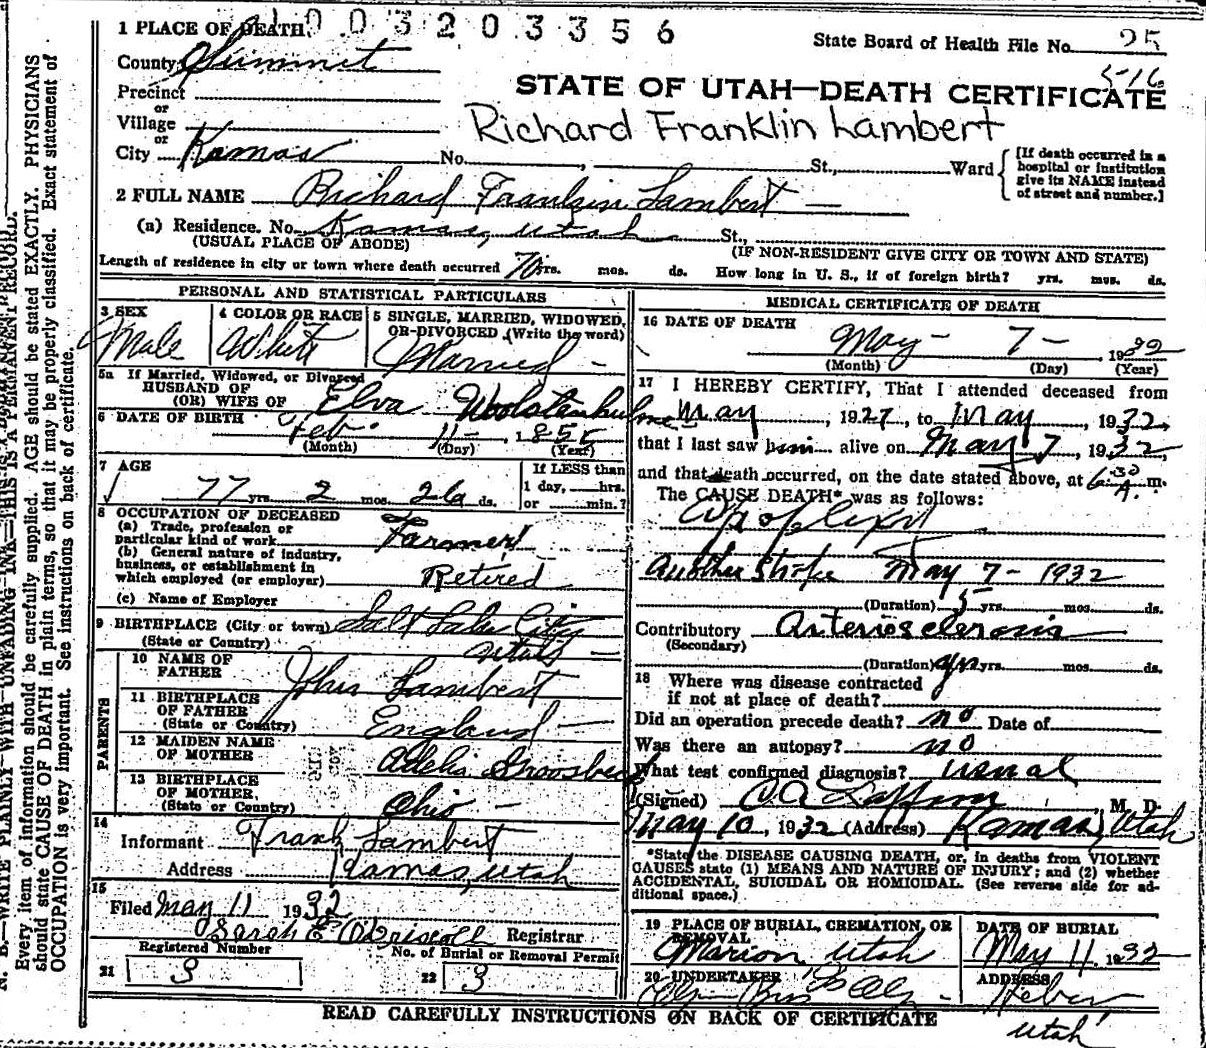 1 PLACE OF DEATH 1003203356
State Board of Health File No. 25
County Summit
5-16
STATE OF UTAH—DEATH CERTIFICATE
Precinct
or
Village
Richard Franklin Lambert
or
City Kamas No. , St., Ward
[If death occurred in a hospital or institution give its NAME instead of street and number.]
2 FULL NAME Richard Franklin Lambert
(a) Residence. No. Kamas, Utah St.,
(USUAL PLACE OF ABODE) (IF NON-RESIDENT GIVE CITY OR TOWN AND STATE)
Length of residence in city or town where death occurred 70 yrs. mos. ds. How long in U. S., if of foreign birth? yrs. mos. ds.
PERSONAL AND STATISTICAL PARTICULARS
3 SEX
Male
4 COLOR OR RACE
White
5 SINGLE, MARRIED, WIDOWED,
OR DIVORCED (Write the word)
Married
5a If Married, Widowed, or Divorced
HUSBAND OF
(OR) WIFE OF Elva Woolstenhulme
6 DATE OF BIRTH Feb. 11 - 1855
(Month) (Day) (Year)
7 AGE
77 yrs. 2 mos. 26 ds.
If LESS than
1 day, hrs.
or min.?
8 OCCUPATION OF DECEASED
(a) Trade, profession or
particular kind of work Farmer
(b) General nature of industry,
business, or establishment in
which employed (or employer) Retired
(c) Name of Employer
9 BIRTHPLACE (City or town) Salt Lake City
(State or Country) Utah
PARENTS
10 NAME OF
FATHER John Lambert
11 BIRTHPLACE
OF FATHER
(State or Country) England
12 MAIDEN NAME
OF MOTHER Adelia Groosbeck
13 BIRTHPLACE
OF MOTHER,
(State or Country) Ohio
14
Informant Frank Lambert
Address Kamas, Utah
15
Filed May 11 1932
Sarah E O'Driscoll Registrar
Registered Number No. of Burial or Removal Permit
21 3 22 3
MEDICAL CERTIFICATE OF DEATH
16 DATE OF DEATH
May - 7 - , 1932
(Month) (Day) (Year)
17 I HEREBY CERTIFY, That I attended deceased from
May , 1927, to May , 1932,
that I last saw him alive on May 7, 1932,
and that death occurred, on the date stated above, at 6:30 A. m.
The CAUSE DEATH* was as follows:
Apoplexy
Another Stroke May 7 - 1932
(Duration) 5 yrs. mos. ds.
Contributory Arteriosclerosis
(Secondary)
(Duration) yrs. mos. ds.
18 Where was disease contracted
if not at place of death?
Did an operation precede death? no Date of
Was there an autopsy? no
What test confirmed diagnosis? usual
(Signed) M. D.
May 10, 1932 (Address) Kamas, Utah
*State the DISEASE CAUSING DEATH, or, in deaths from VIOLENT
CAUSES state (1) MEANS AND NATURE OF INJURY; and (2) whether
ACCIDENTAL, SUICIDAL OR HOMICIDAL. (See reverse side for ad-
ditional space.)
19 PLACE OF BURIAL, CREMATION, OR
REMOVAL
Marion Utah
DATE OF BURIAL
May 11 1932
20 UNDERTAKER
ADDRESS
Heber
Utah
READ CAREFULLY INSTRUCTIONS ON BACK OF CERTIFICATE
N. B.—WRITE PLAINLY WITH UNFADING INK—THIS IS A PERMANENT RECORD.
Every item of information should be carefully supplied. AGE should be stated EXACTLY. PHYSICIANS
should state CAUSE OF DEATH in plain terms, so that it may be properly classified. Exact statement of
OCCUPATION is very important. See instructions on back of certificate.